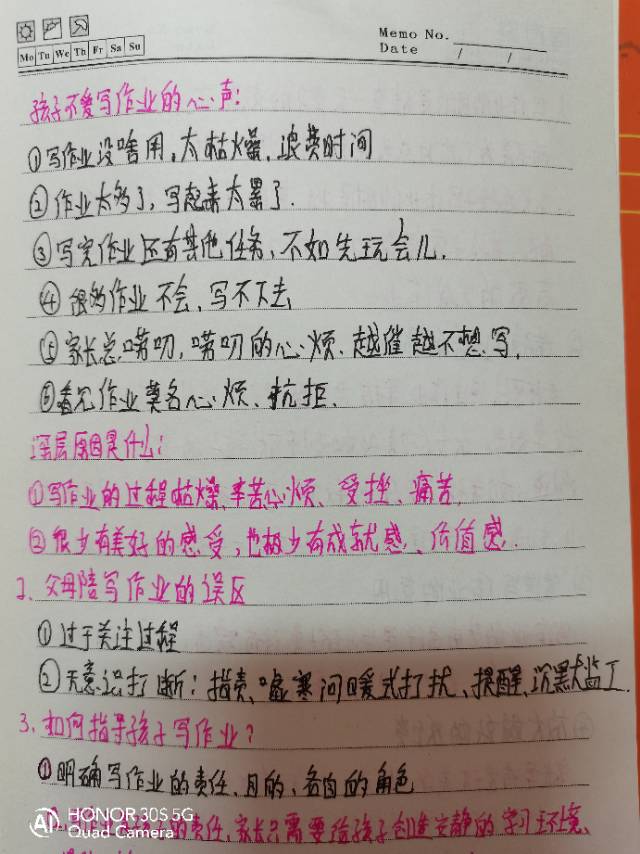 Memo No.
Mo Tu We Th Fr Sa Su
Date / /
孩子不爱写作业的心声:
①写作业没啥用,太枯燥,浪费时间
②作业太多了,写起来太累了.
③写完作业还有其他任务、不如先玩会儿.
④很多作业不会、写不下去
⑤家长总唠叨,唠叨的心烦、越催越不想写.
⑥看见作业莫名心烦、抗拒.
深层原因是什么:
①写作业的过程枯燥、辛苦心烦、受挫、痛苦.
②很少有美好的感受,也极少有成就感、价值感.
2、父母陪写作业的误区
①过于关注过程
②无意识打断:指责、嘘寒问暖式打扰、提醒、沉默监工.
3、如何指导孩子写作业?
①明确写作业的责任、目的、各自的角色
的责任、家长只需要给孩子创造安静的学习环境、
HONOR 30S 5G
Quad Camera